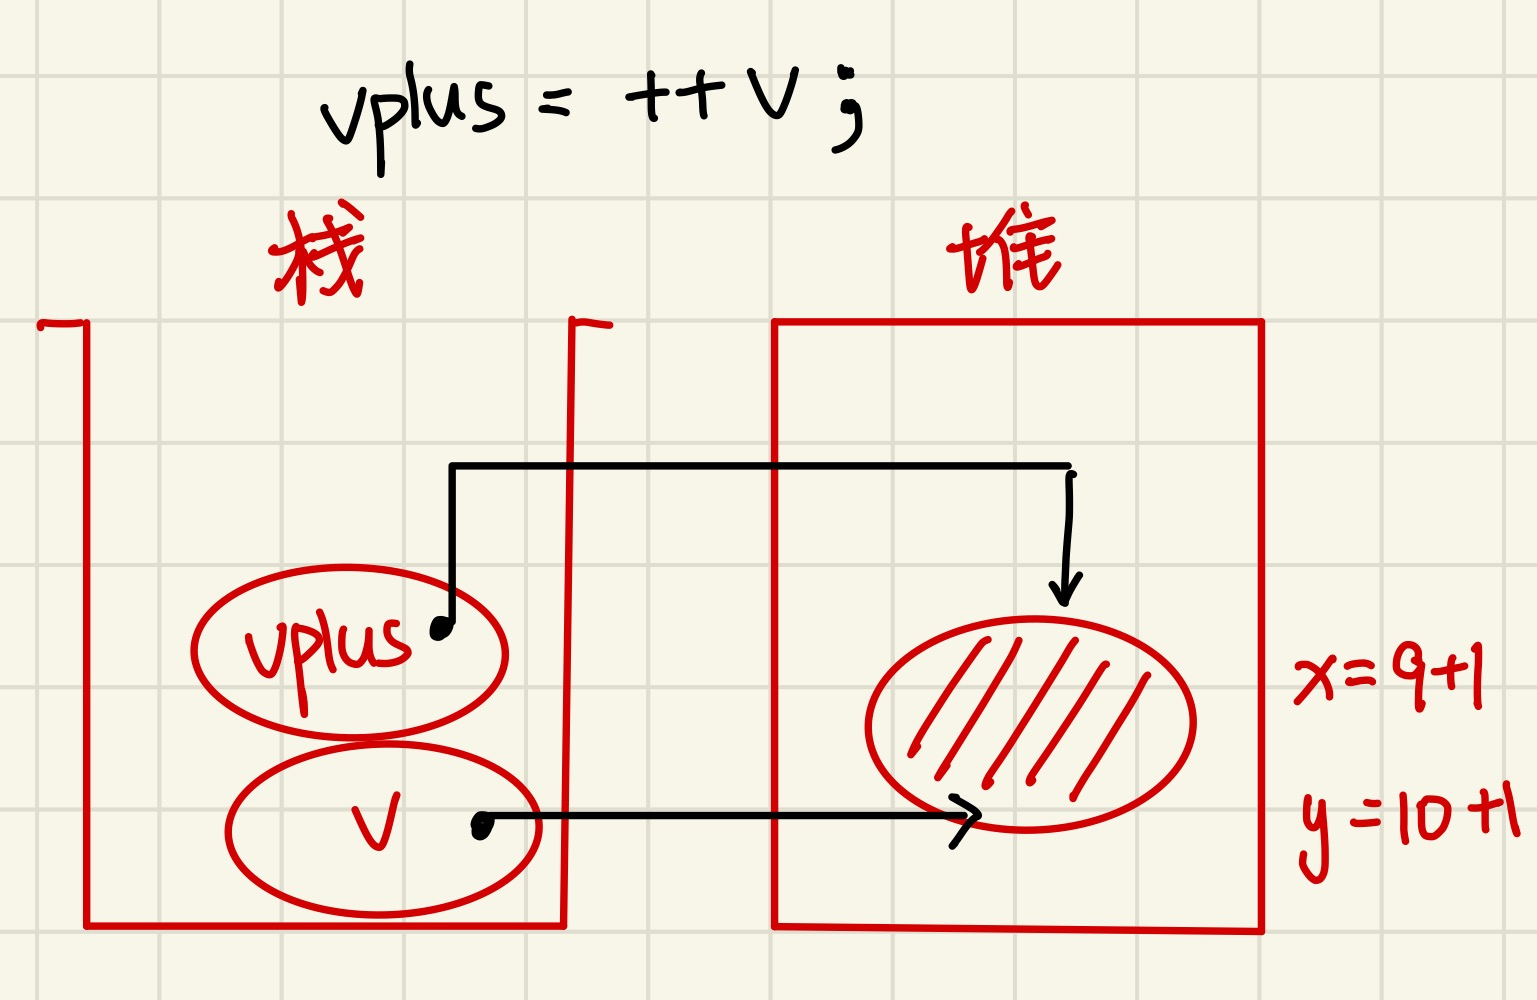 vplus = ++v;
栈
堆
vplus
v
x=9+1
y=10+1